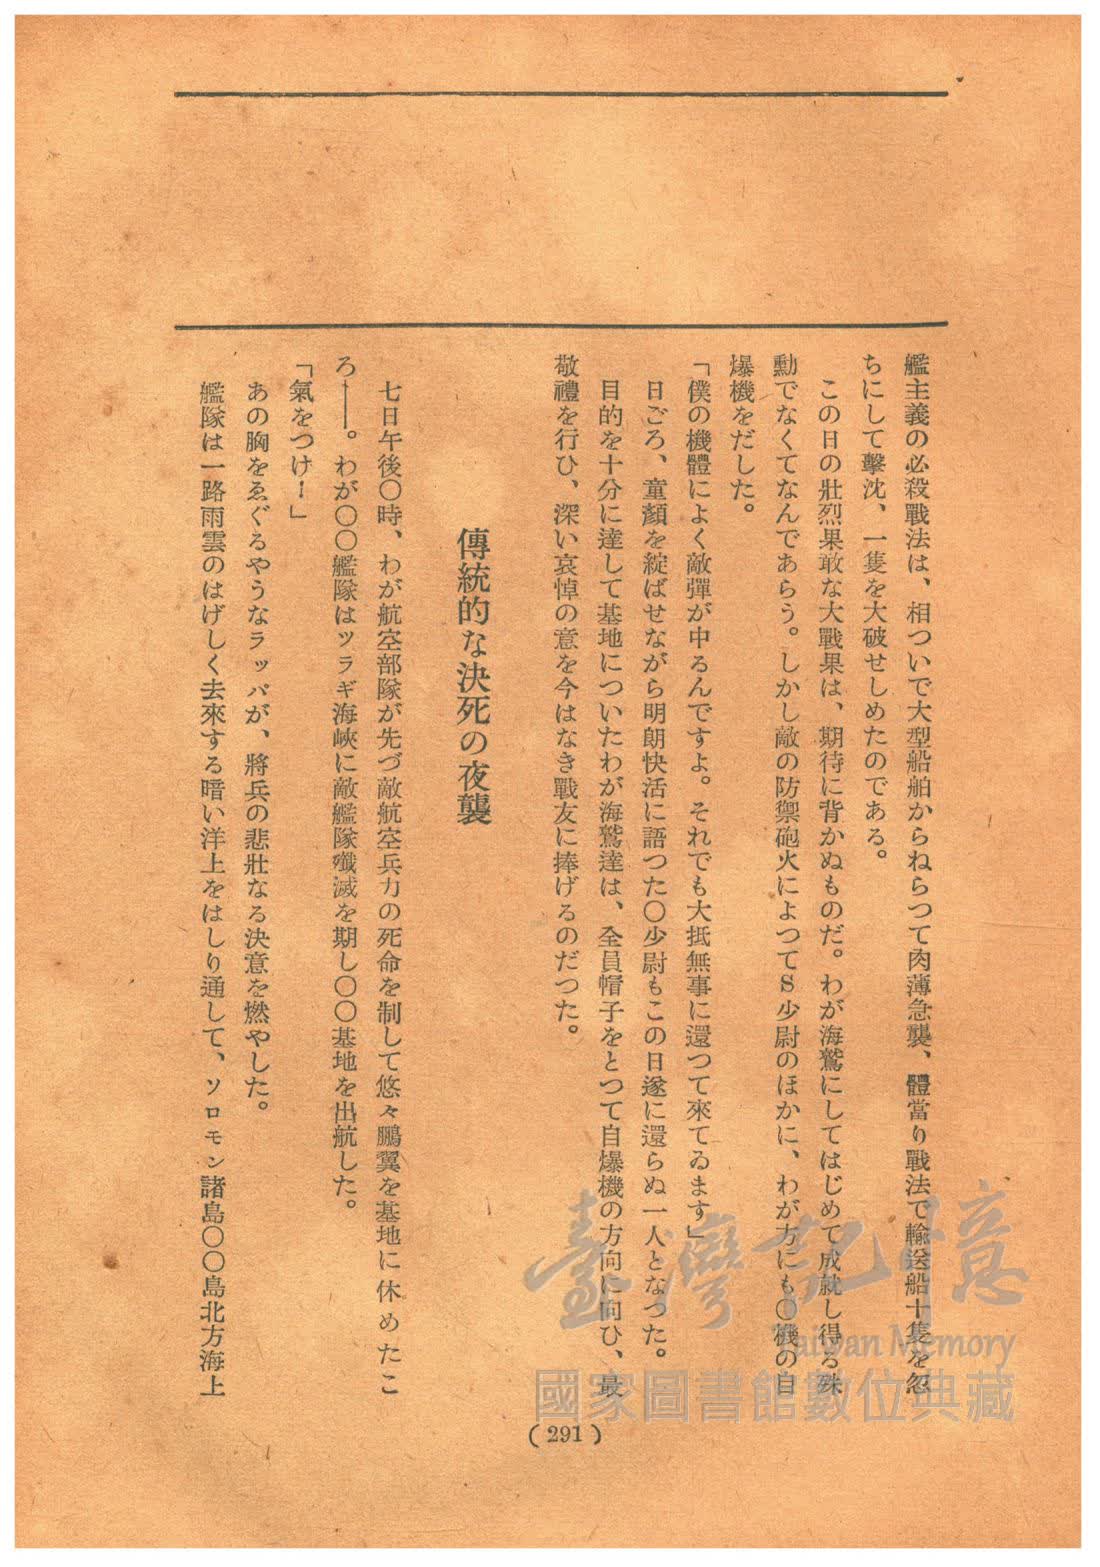 艦主義の必殺戰法は、相ついで大型船舶からねらつて肉薄急襲、體當り戰法で輸送船十隻を忽
ちにして擊沈、一隻を大破せしめたのである。
この日の壯烈果敢な大戰果は、期待に背かぬものだ。わが海鷲にしてはじめて成就し得る殊
勳でなくてなんであらう。しかし敵の防禦砲火によつてS少尉のほかに、わが方にも〇機の自
爆機をだした。
「僕の機體によく敵彈が中るんですよ。それでも大抵無事に還つて來てゐます」
日ごろ、童顏を綻ばせながら明朗快活に語つた〇少尉もこの日遂に還らぬ一人となつた。
目的を十分に達して基地についたわが海鷲達は、全員帽子をとつて自爆機の方向に向ひ、最
敬禮を行ひ、深い哀悼の意を今はなき戰友に捧げるのだつた。
傳統的な決死の夜襲
七日午後〇時、わが航空部隊が先づ敵航空兵力の死命を制して悠々鵬翼を基地に休めたこ
ろ――。わが〇〇艦隊はツラギ海峽に敵艦隊殲滅を期し〇〇基地を出航した。
「氣をつけー」
あの胸をゑぐるやうなラッパが、將兵の悲壯なる決意を燃やした。
艦隊は一路雨雲のはげしく去來する暗い洋上をはしり通して、ソロモン諸島〇〇島北方海上
(291)
臺灣記憶
Taiwan Memory
國家圖書館數位典藏